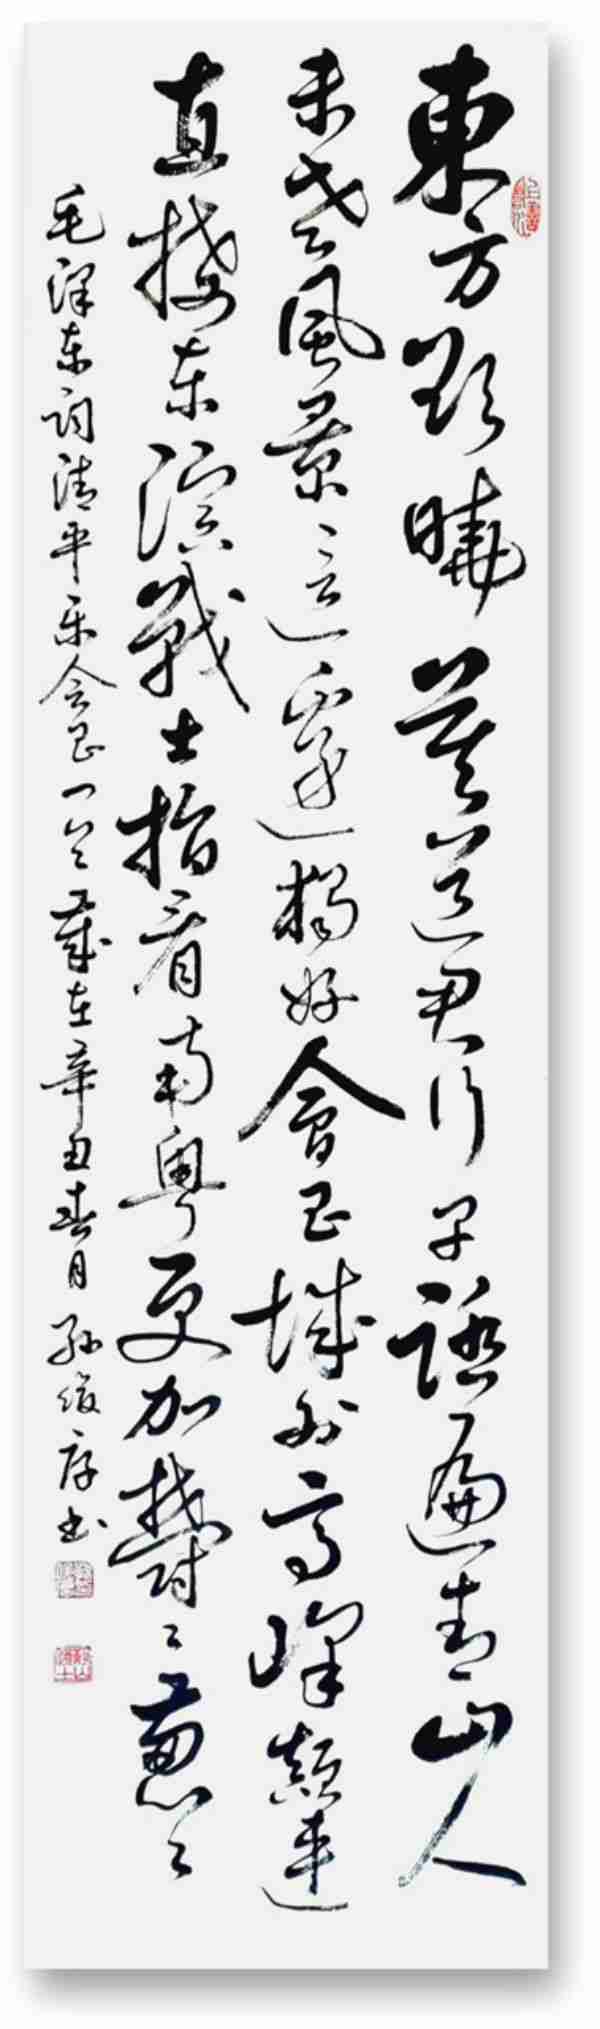 東方欲曉莫道君行早踏遍青山人
未老風景這邊獨好會昌城外高峰顛連
直接东溟戰士指看南粵更加鬱々蔥々
毛澤东詞清平乐会昌一首歲在辛丑春月孫俊书